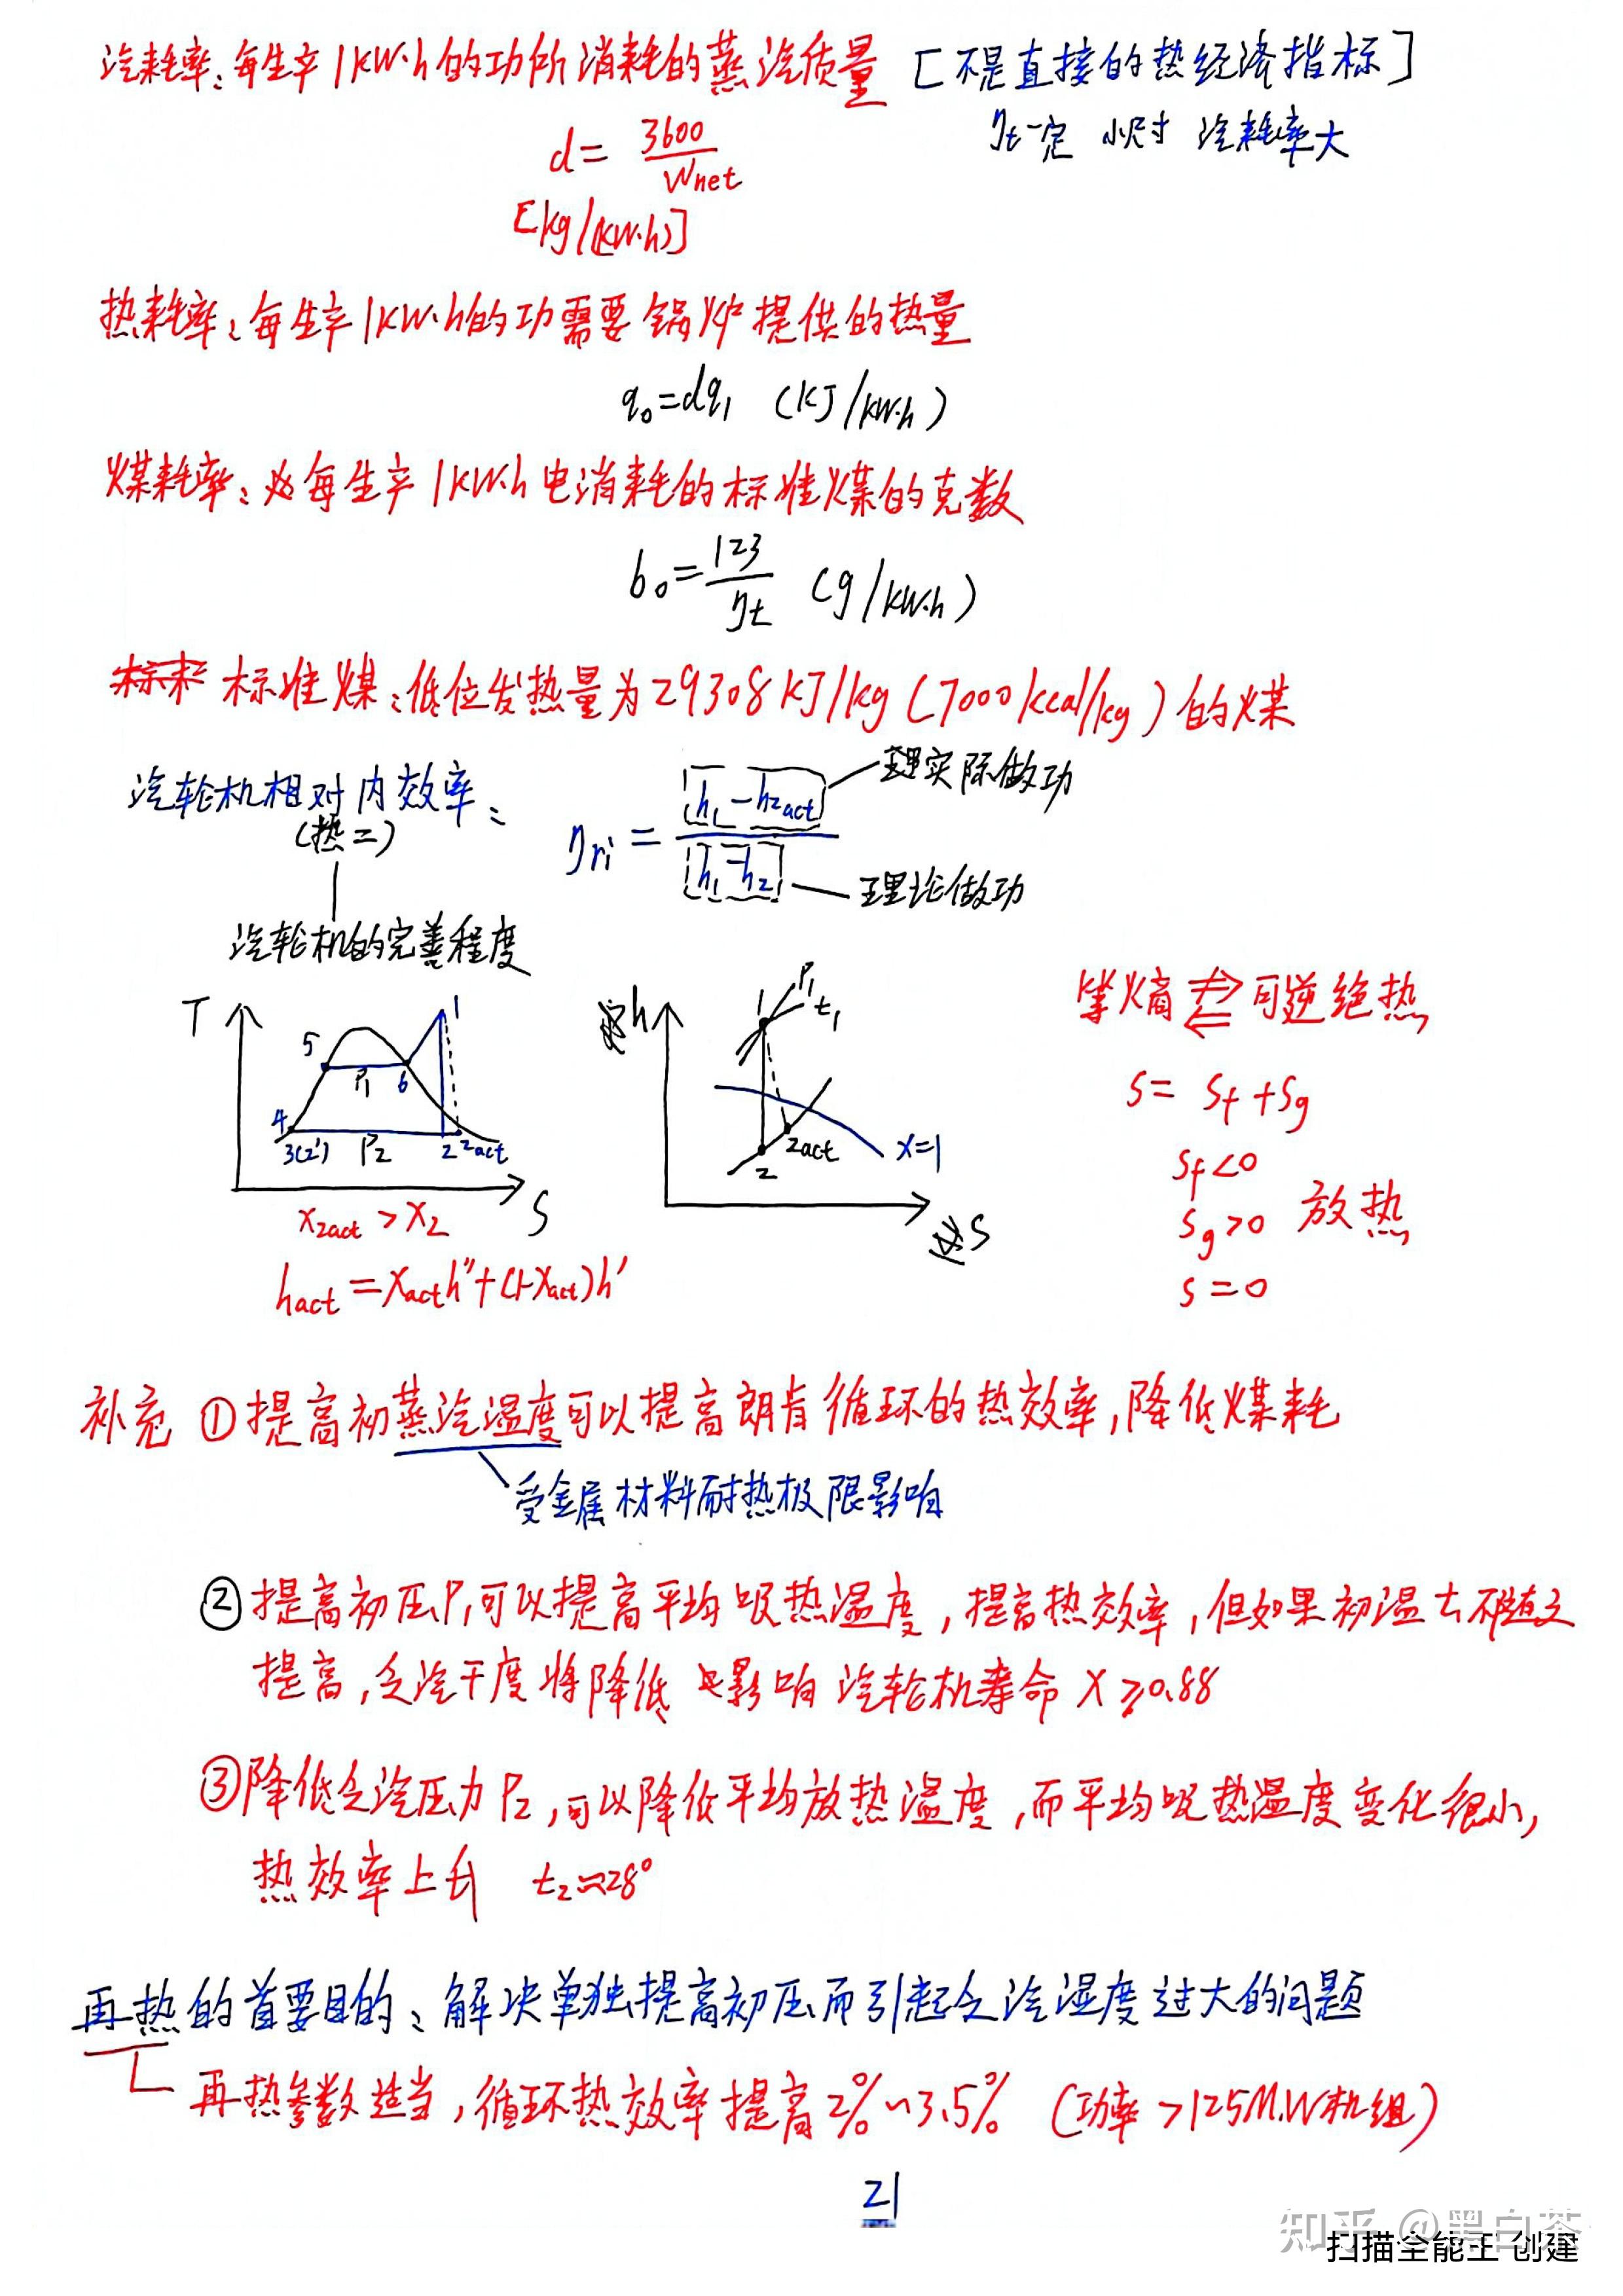 汽耗率：每生产1kW·h的功所消耗的蒸汽质量 [不是直接的热经济指标]
ηt一定 小尺寸 汽耗率大
d = 3600/Wnet
[kg/(kW·h)]
热耗率：每生产1kW·h的功需要锅炉提供的热量
q₀=dq₁ (kJ/kW·h)
煤耗率：每生产1kW·h电消耗的标准煤的克数
b₀=123/ηt (g/kW·h)
标准煤：低位发热量为29308kJ/kg(7000kcal/kg)的煤
汽轮机相对内效率：
(热二)
ηri = (h₁-h₂act)/(h₁-h₂)
实际做功
理论做功
汽轮机的完善程度
T
1
5
P₁
6
4
3(2')
P₂
2
2act
S
h
1
P₁
t₁
2act
2
x=1
S
x₂act > x₂
hact = xact h''+(1-xact)h'
等熵⇄可逆绝热
S= Sf+Sg
Sf<0
Sg>0 放热
S=0
补充 ①提高初蒸汽温度可以提高朗肯循环的热效率,降低煤耗
受金属材料耐热极限影响
②提高初压P₁可以提高平均吸热温度,提高热效率,但如果初温t不随之
提高,乏汽干度将降低 影响汽轮机寿命 X≥0.88
③降低乏汽压力P₂,可以降低平均放热温度,而平均吸热温度变化很小,
热效率上升 t₂≈28°
再热的首要目的：解决单独提高初压而引起乏汽湿度过大的问题
再热参数适当,循环热效率提高2%~3.5% (功率>125M.W机组)
21
知乎 @黑白茶
扫描全能王 创建